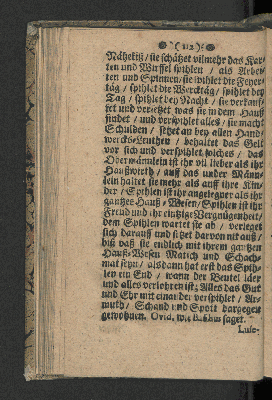 ( 112 )
Nähekiß / sie schätzet vilmehr das Kar-
ten und Würffel spihlen / als Arbei-
ten und Spinnen; sie spihlet die Feyer-
täg / spihlet die Wercktäg / spihlet bey
Tag / spihlet bey Nacht / sie verkauf-
fet und versetzt was sie in dem Hauß
findet / und verspihlet alles / sie macht
Schulden / sitzet an bey allen Hand-
wercks-Leuthen / behaltet das Gelt
vor sich und verspihlet solches / das
Obermännlein ist ihr vil lieber als ihr
Haußwerth / auff das under Männ-
lein haltet sie mehr als auff ihre Kin-
der / Spihlen ist ihr angelegner als ihr
gantzes Hauß-Wesen / Spihlen ist ihr
Freud und ihr eintzige Vergnügenheit /
dem Spihlen wartet sie ab / verleget
sich darauff und setzet darvon nit auß /
biß daß sie endlich mit ihrem gantzen
Hauß-Wesen Matsch und Schach-
mat seye / alsdann hat erst das Spih-
len ein End / wann der Beutel läer
und alles verlohren ist; Alles das Gut
und Ehr mit einander verspihlet / Ar-
muth / Schand und Spott dargegen
gewohnnen. Ovid. wie saget.